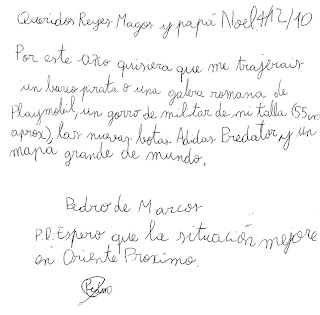 Queridos Reyes Magos y papá Noel 4/12/10
Por este año quisiera que me trajerais
un barco pirata o una galera romana de
Playmobil, un gorro de militar de mi talla (55cm
aprox), las nuevas botas Adidas Predator, y un
mapa grande de mundo.
Pedro de Marcos
P.D: Espero que la situación mejore
en Oriente Proximo.
Pedro